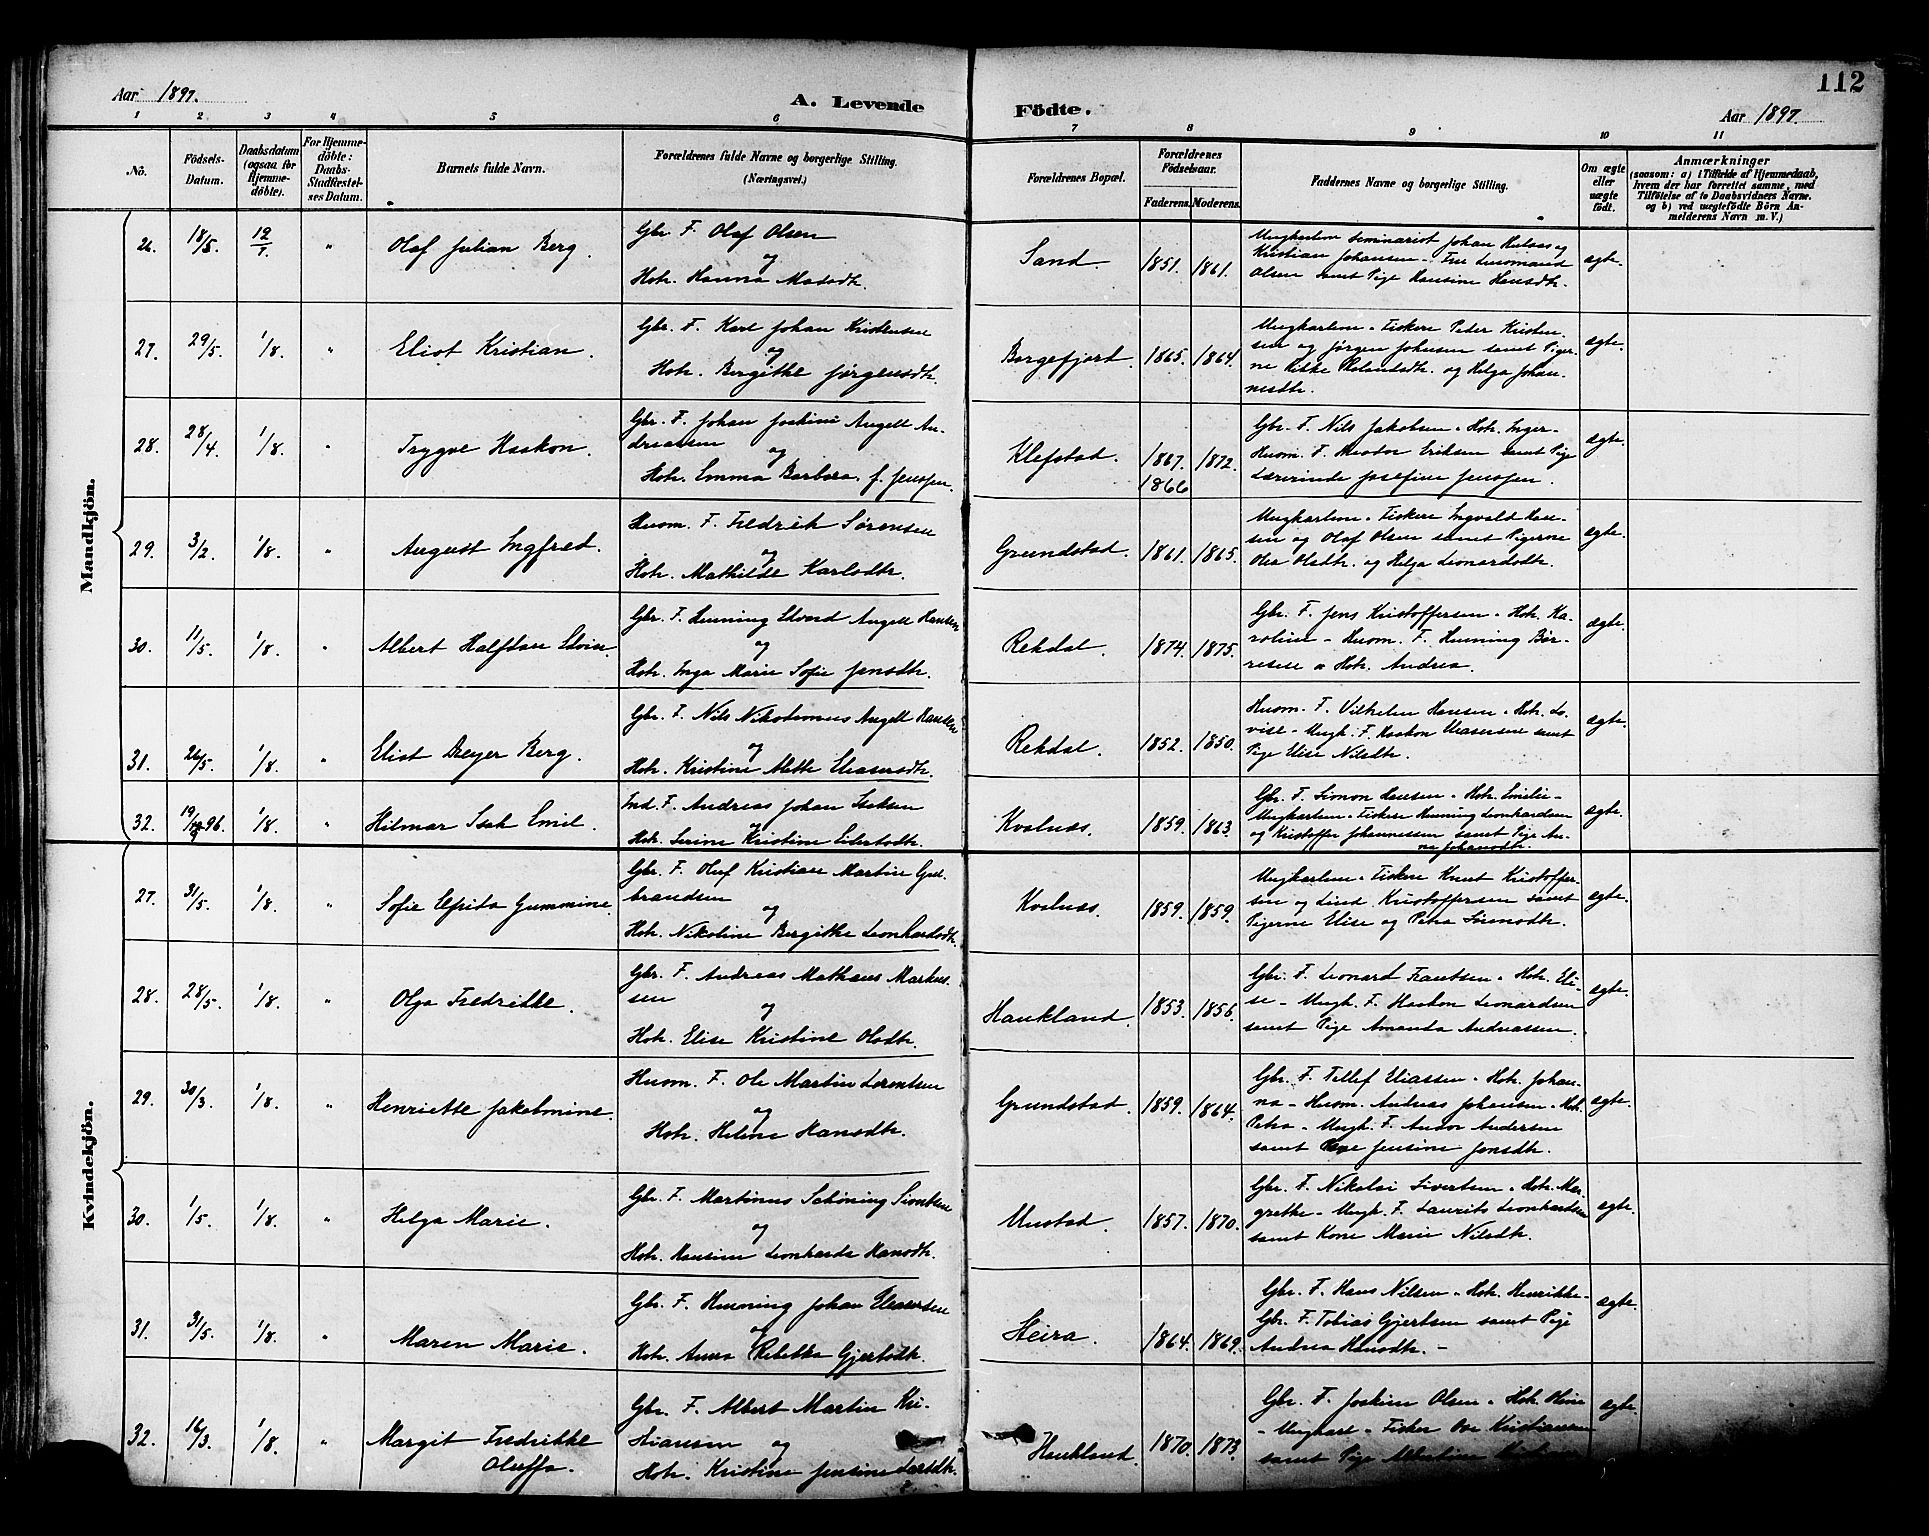 112
Aar 1897.
A. Levende Födte.
Aar 1897.
1 2 3 4 5 6 7 8 9 10 11
No.
Födsels-Datum.
Daabsdatum (ogsaa for Hjemmedöbte).
For Hjemmedöbte: Daabs-Stadfæstelses Datum.
Barnets fulde Navn.
Forældrenes fulde Navne og borgerlige Stilling.
(Næringsvei.)
Forældrenes Bopæl.
Forældrenes Födselsaar.
Faderens. Moderens.
Faddernes Navne og borgerlige Stilling.
Om ægte eller uægte födt.
Anmærkninger
(saasom: a) i Tilfælde af Hjemmedaab,
hvem der har forrettet samme, med
Tilföielse af to Daabsvidners Navne.
og b) ved uægtefödte Börn Anmelderens Navn m. V.)
Mandkjön.
26. 18/5. Olaf Julian Berg.
Gbr. F. Olaf Olsen
og
Hstr. Hanna Madsdtr.
Sand. 1851. 1861.
Kristian Johansen
Olsen samt Pige Hansine Hansdtr.
ægte.
27. 29/5. 1/8. " Eliot Kristian.
Gbr. F. Karl Johan Kristensen
og
Hstr. Bergithe Jørgensdtr.
Borgefjord. 1865. 1864.
Ungkarlene Fiskere Peder Kristensen og Jørgen Johnsen samt Pigerne
og Helga Johannesdtr.
ægte.
28. 28/4. 1/8. " Trygve Haakon.
Gbr. F. Johan Joakim Angell Andreassen
og
Hstr. Emma Barbara f. Jenssen.
Klefstad. 1867. 1872.
1866
Gbr. F. Nils Jakobsen Hstr. Inger
Husm. F. Eriksen samt Pige
Lærerinde Josefine Jenssen.
ægte.
29. 3/2. 1/8. " August Ingfred.
Husm. F. Fredrik Sørensen
og
Hstr. Mathilde Karlsdtr.
Grundstad. 1861. 1865.
Ungkarlene Fiskere Ingvald Hansen og Olaf Olsen samt Pigerne
Olsdtr. og Helga Leonardsdtr.
ægte.
30. 11/5. 1/8. " Albert Halfdan Edvin.
Gbr. F. Henning Edvard Angell Hansen
og
Hstr. Inga Marie Sofie Jensdtr.
Rekdal. 1874. 1875.
Gbr. F. Jens Kristoffersen Hstr. Karoline Husm. F. Henning Børresen Hstr. Andrea.
ægte.
31. 26/5. 1/8. " Eliot Dreyer Berg.
Gbr. F. Nils Nikodemus Angell Hansen
og
Hstr. Kristine Mette Eleasersdtr.
Rekdal. 1852. 1850.
Husm. F. Vilhelm Hansen Hstr. Lovise Ungk. F. Haakon Eleasersen samt
Pige Elise Nilsdtr.
ægte.
32. 19/ 96. 1/8. " Hilmar Emil.
Ind. F. Andreas Johan
og
Hstr. Serine Kristine Edvartsdtr.
Kvalnæs. 1859. 1863.
Gbr. F. Simon Hansen Hstr. Emilie
Ungkarlene Fiskere Henning Leonhardsen
og Kristoffer Johannessen samt Pige Anne Johansdtr.
ægte.
Kvindekjön.
27. 31/5. 1/8. " Sofie Gummine.
Gbr. F. Oluf Kristian Martin Gulbrandsen
og
Hstr. Nikoline Bergithe Leonhardsdtr.
Kvalnæs. 1859. 1859.
Ungkarlene Fiskere Knut Kristoffersen og Kristoffersen samt
Pigerne Elise og Petra Simonsdtr.
ægte.
28. 28/5. 1/8. " Olga Fredrikke.
Gbr. F. Andreas Mathæus Markussen
og
Hstr. Elise Kristine Olsdtr.
Haukland. 1853. 1856.
Gbr. F. Leonard Frantsen Hstr. Elise Ungk. F. Haakon Leonardsen
samt Pige Amanda Andreassen.
ægte.
29. 30/3. 1/8. " Henriette Jakobmine.
Husm. F. Ole Martin Lorentsen
og
Hstr. Helene Hansdtr.
Grundstad. 1859. 1864.
Gbr. F. Tellef Eliassen Hstr. Johanna Husm. Andreas Johansen Hstr.
Petra Ungk. F. Anton Andersen
samt Jensine Jensdtr.
ægte.
30. 1/5. 1/8. " Helga Marie.
Gbr. F. Martinus Schøning Sivertsen
og
Hstr. Hansine Leonharda Hansdtr.
Unstad. 1857. 1870.
Gbr. F. Nikolai Sivertsen Hstr. Margrethe Ungk. F. Laurits Leonhardsen
samt Kone Marie Nilsdtr.
ægte.
31. 31/5. 1/8. " Maren Marie.
Gbr. F. Henning Johan Eleasersen
og
Hstr. Anna Rebekka Gjertsdtr.
Steira. 1864. 1869.
Gbr. F. Hans Nilsen Hstr. Henrikke
Gbr. F. Tobias Gjertsen samt Pige
Andrea Hansdtr.
ægte.
32. 16/3. 1/8. " Margit Fredrikke
Oluffa.
Gbr. F. Albert Martin Kristiansen og
Hstr. Kristine Jensine
Haukland. 1870. 1873.
Gbr. F. Joakim Olsen Hstr.
Ungkarl Fisker Ove Kristiansen
samt Pige
ægte.